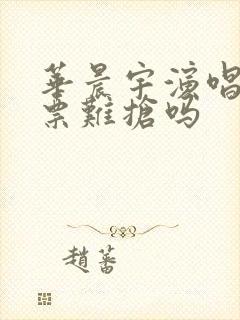 華晨宇演唱
票難搶吗
趙蕃